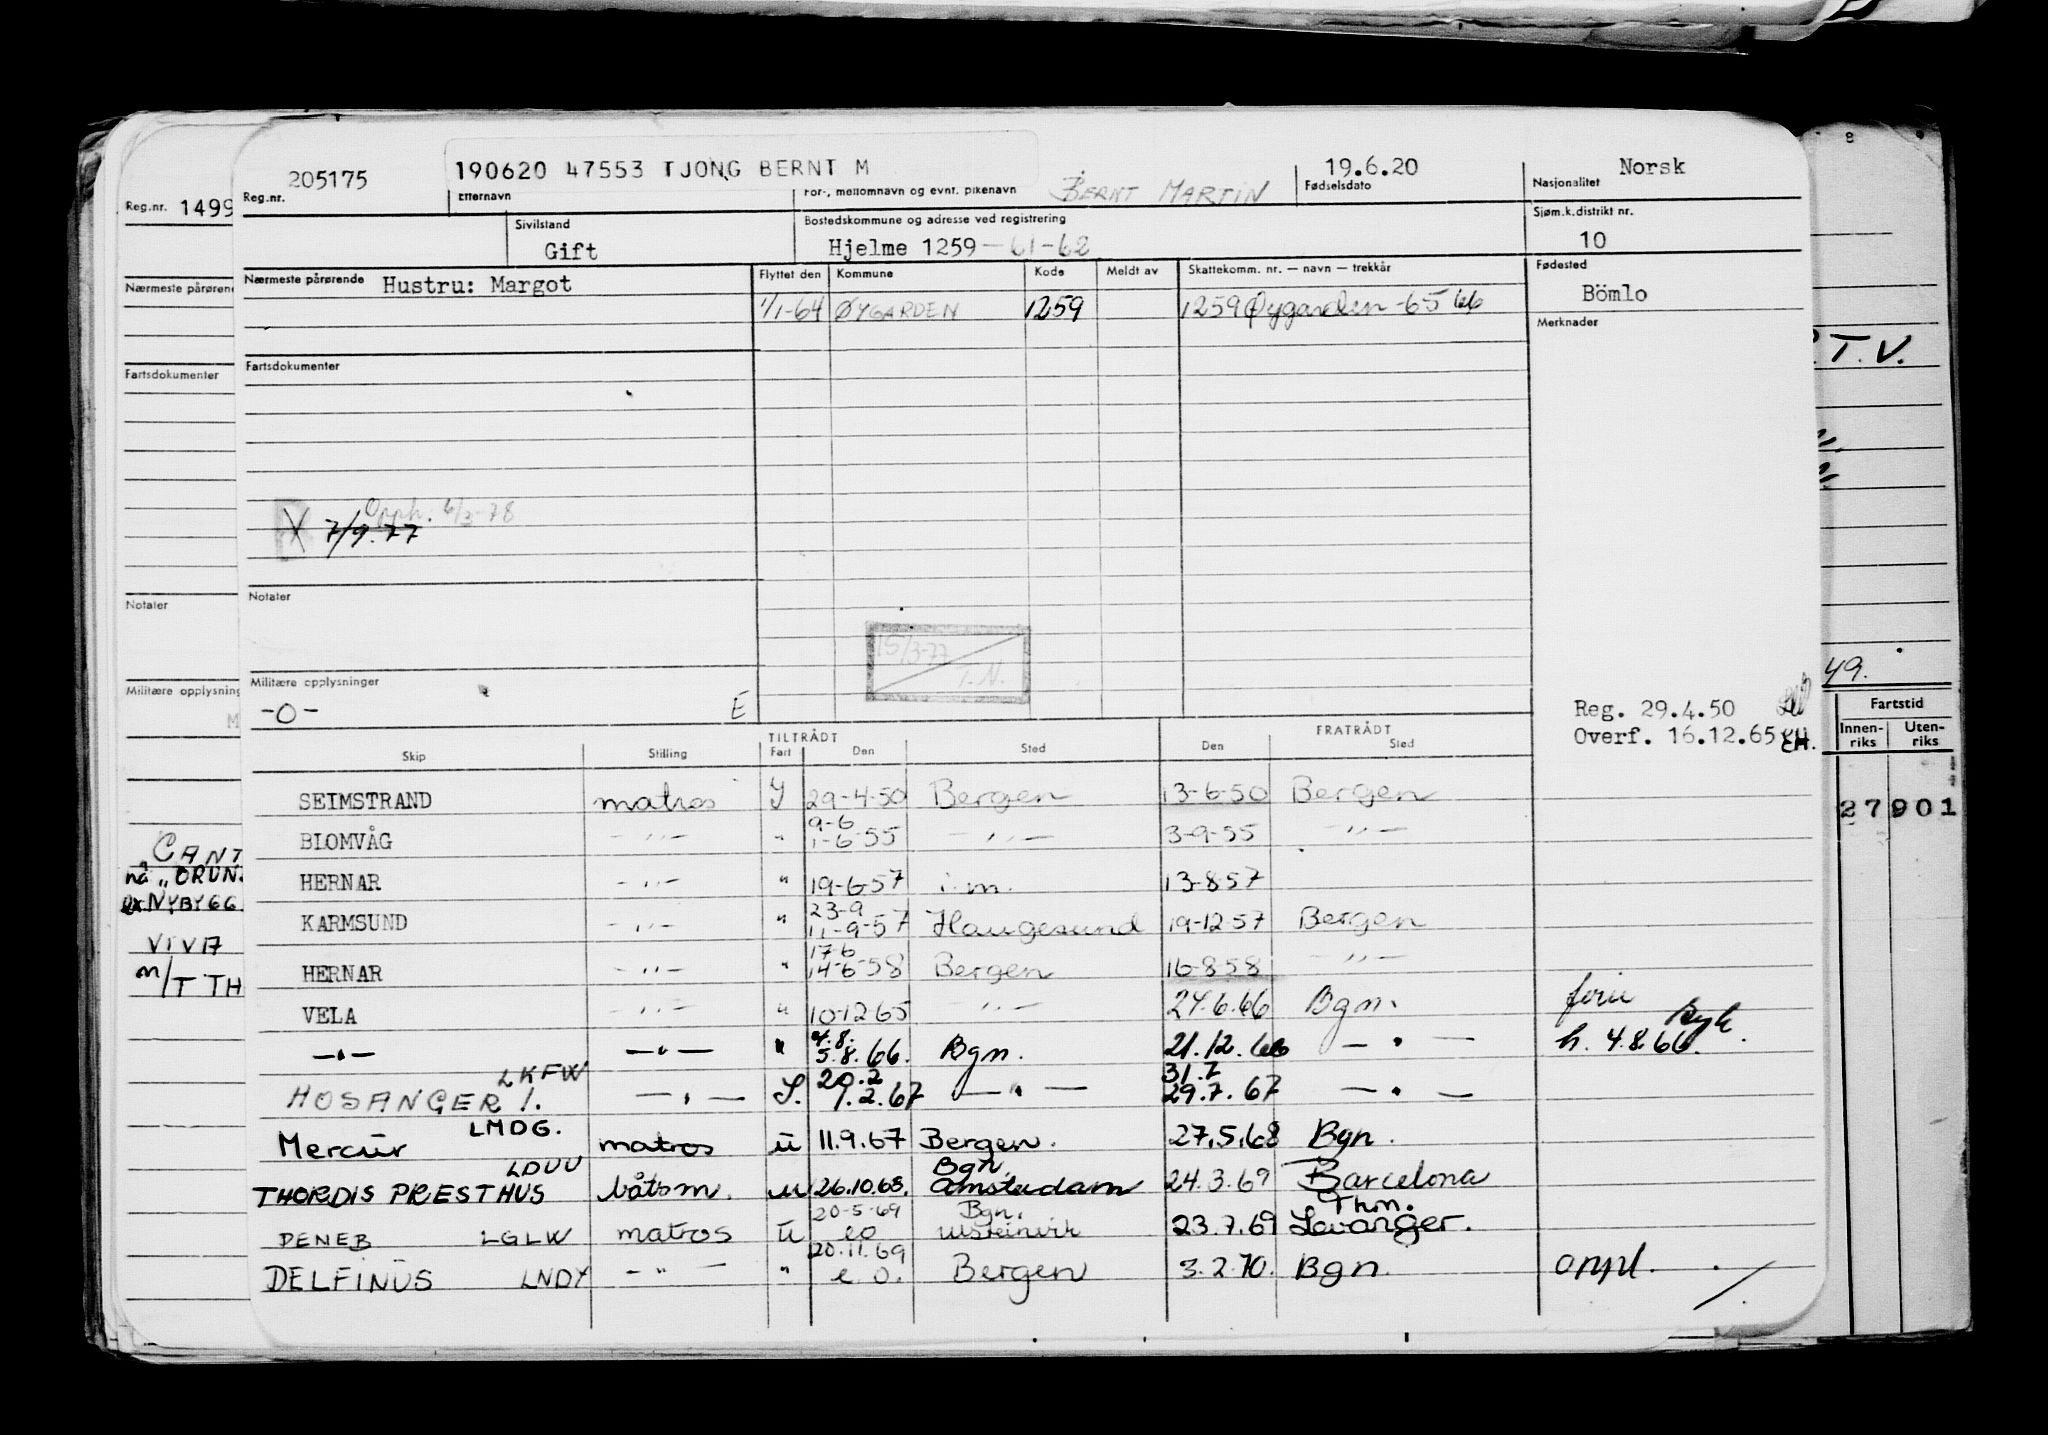 8 9
205175 190620 47553 TJONG BERNT M 19.6.20 Norsk
Reg.nr. 1499 Reg.nr. Etternavn For-, mellomnavn og evnt. pikenavn BERNT MARTIN Fødselsdato Nasjonalitet
Sivilstand Bostedskommune og adresse ved registrering Sjøm.k.distrikt nr.
Gift Hjelme 1259 -61-62 10
Nærmeste pårørende Hustru: Margot Flyttet den Kommune Kode Meldt av Skattekomm. nr. — navn — trekkår Fødested
1/1-64 ØYGARDEN 1259 1259 Øygarden -65 66 Bömlo
Merknader
.T.V.
Fartsdokumenter Fartsdokumenter
Opph. 6/3-78
7/9.77
Notater Notater
15/3-77
T.N.
Militære opplysninger
-0- E
49.
Reg. 29.4.50
Overf. 16.12.65 EH.
Fartstid
Innen-riks Uten-riks
TILTRÅDT FRATRÅDT
Skip Stilling Fart Den Sted Den Sted
SEIMSTRAND matros I 29-4-50 Bergen 13-6-50 Bergen
27901
9-6
BLOMVÅG -"- " 1-6-55 -"- 3-9-55 -"-
CANT
nå "ORUN.
HERNAR -"- " 19-6-57 i.m. 13-8-57
ex NYBYGG.
23-9
KARMSUND -"- " 11-9-57 Haugesund 19-12-57 Bergen
VIVA
17-6
HERNAR -"- " 14-6-58 Bergen 16-8-58 -"-
m/T TH
VELA -"- " 10-12-65 -"- 24.6.66 Bgn. ferie
4.8.
-"- -"- " 5.8.66. Bgn. 21.12.66 -"- h. 4.8.66.
LKFW 20.2 31.7
HOSANGER I. -"- I. 1.2.67 -"- 29.7.67 -"-
LMDG.
Mercur matros u 11.9.67 Bergen. 27.5.68 Bgn.
LDUU Bgn.
THORDIS PRESTHUS båtsm. u 26.10.68. Amsterdam 24.3.69 Barcelona
20-5-69 Bgn. Thm.
DENEB LGLW matros u eo Ulsteinvik 23.7.69 Levanger.
20.11.69
DELFINUS LNDY -"- " e.o. Bergen 3.2.70. Bgn. oppl.